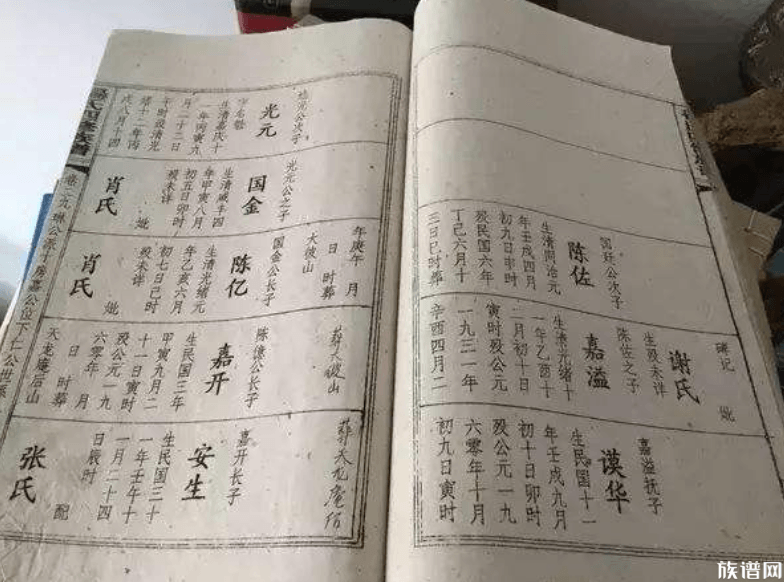 谢氏
碑记 妣
生殁未详
陈佐
国珏公次子
生清同治元
年壬戌四月
初九日申时
殁民国六年
丁己六月十
三日已时葬
嘉溢
陈佐之子
生清光绪十
一年乙酉十
二月初十日
寅时殁公元
一九三一年
辛酉四月二
谟华
嘉溢抚子
生民国十一
年壬戌九月
初十日卯时
殁公元一九
六零年十月
初九日寅时
光元
焼光公次子
字名敬
生清嘉庆十
一年丙寅九
月二十二日
午时殁清光
绪十二年丙
戌八月十四
国金
光元公之子
生清咸丰四
年甲寅八月
初五日卯时
殁未详
肖氏
妣
年庚午 月
日 时葬
大彼山
陈亿
国金公长子
生清光绪元
年乙亥六月
初七日己时
殁未详
肖氏
妣
葬大彼山
嘉开
陈億公长子
生民国三年
甲寅九月二
十一日寅时
殁公元一九
六零年 月
日 时葬
天龙庵后山
葬天龙庵后
安生
嘉开长子
生民国三十
一年壬午十
一月二十四
日辰时
张氏
配
易氏四修族谱
卷二九琳公派十房嘉公位下仁公世系
族谱网